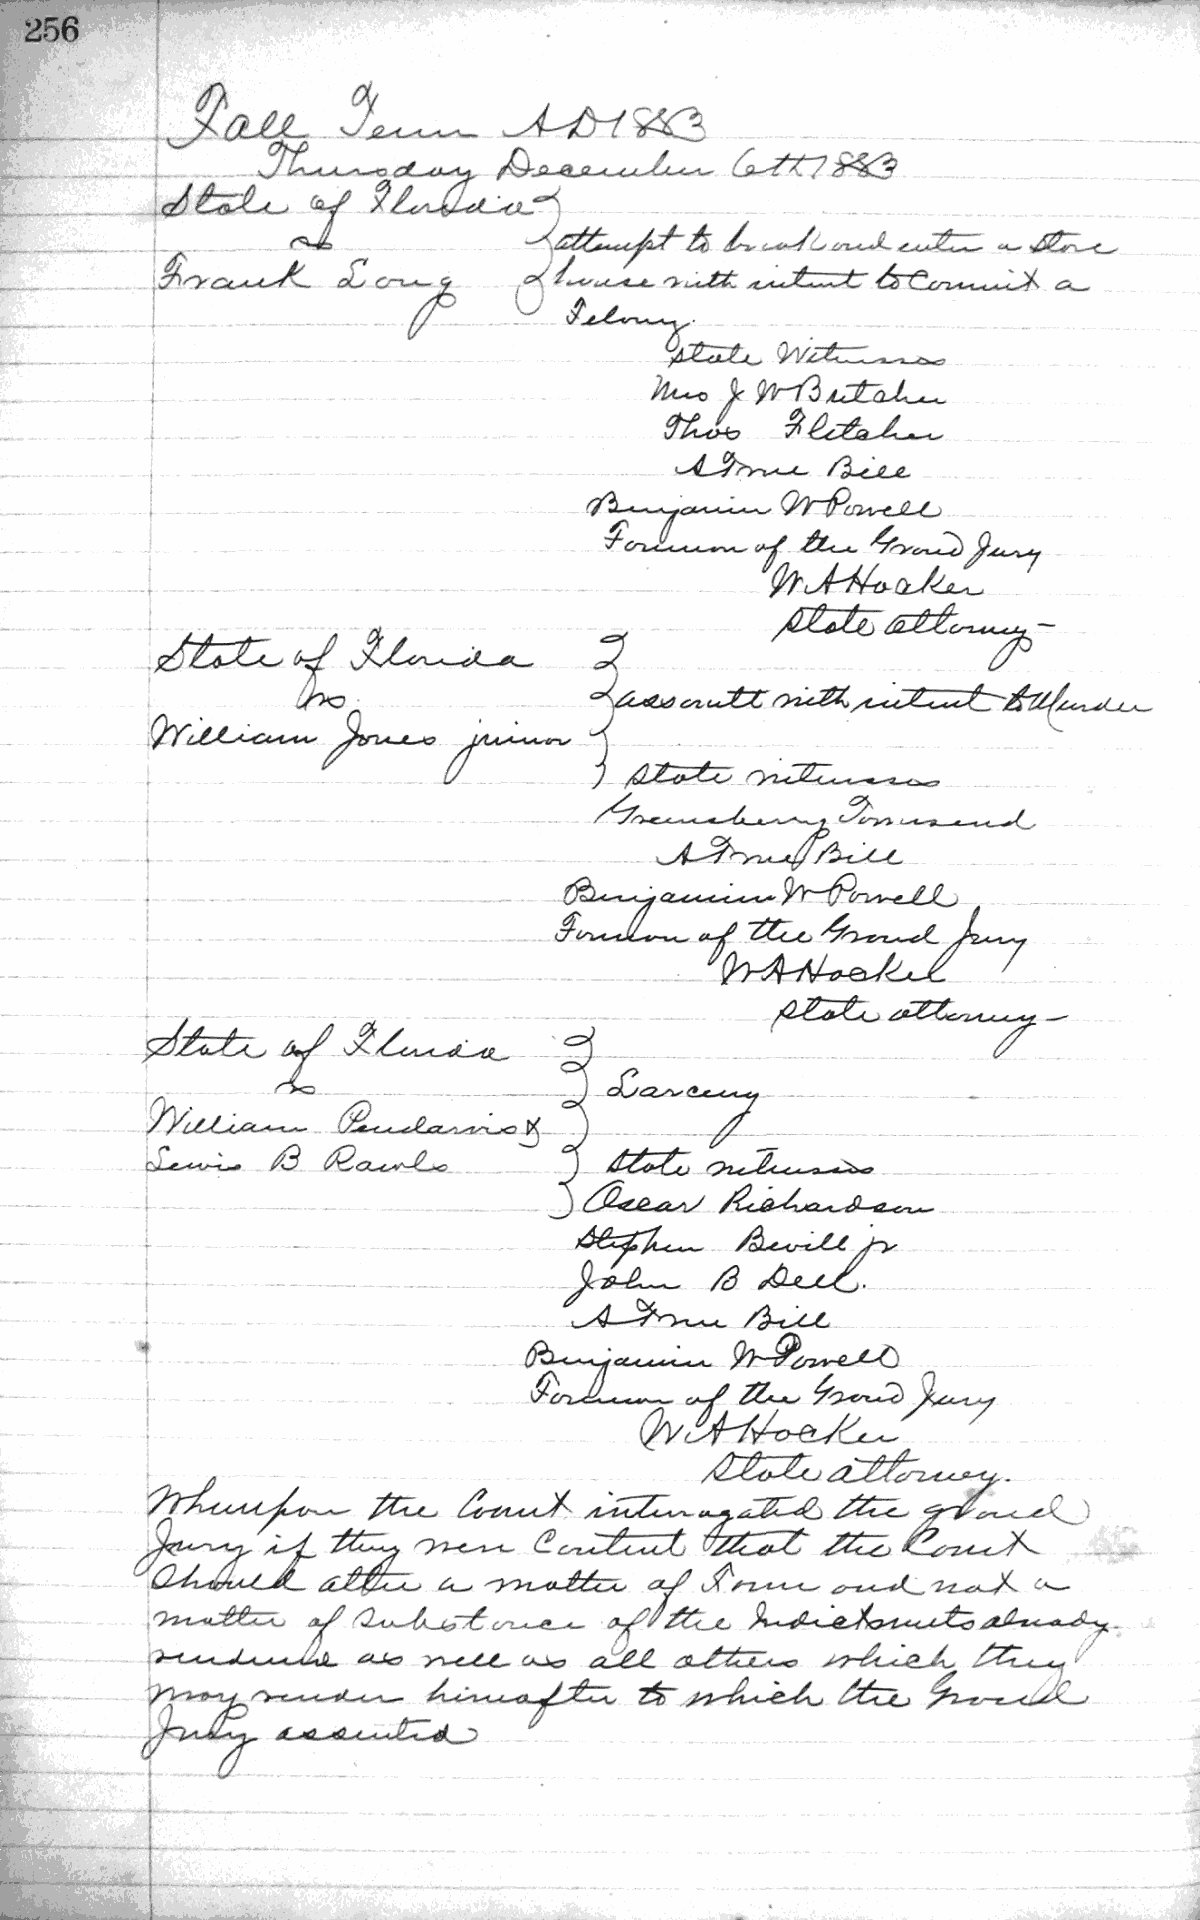 256
Fall Term A D 1883
Thursday December 6th 1883
State of Florida
vs
attempt to break and enter a Store
Frank Long
house with intent to Commit a
Felony.
State Witnesses
Mrs J W Butcher
Thos Fletcher
A True Bill
Benjamin W Powell
Forman of the Grand Jury
W A Hocker
State attorney-
State of Florida
vs
assault with intent to Murder
William Jones junior
State witnesses
Greensberry Townsend
A True Bill
Benjamin W Powell
Forman of the Grand Jury
W A Hocker
State attorney-
State of Florida
vs
Larceny
William Pendarvis &
Lewis B Rawls
State witnesses
Oscar Richardson
Stephen Bevill jr
John B Dell.
A True Bill
Benjamin W Powell
Forman of the Grand Jury
W A Hocker
State attorney.
Whereupon the Court interrogated the grand
Jury if they were Content that the Court
Should alter a matter of Form and not a
matter of Substance of the Indictments already
rendered as well as all others which they
may render hereafter to which the Grand
Jury assented